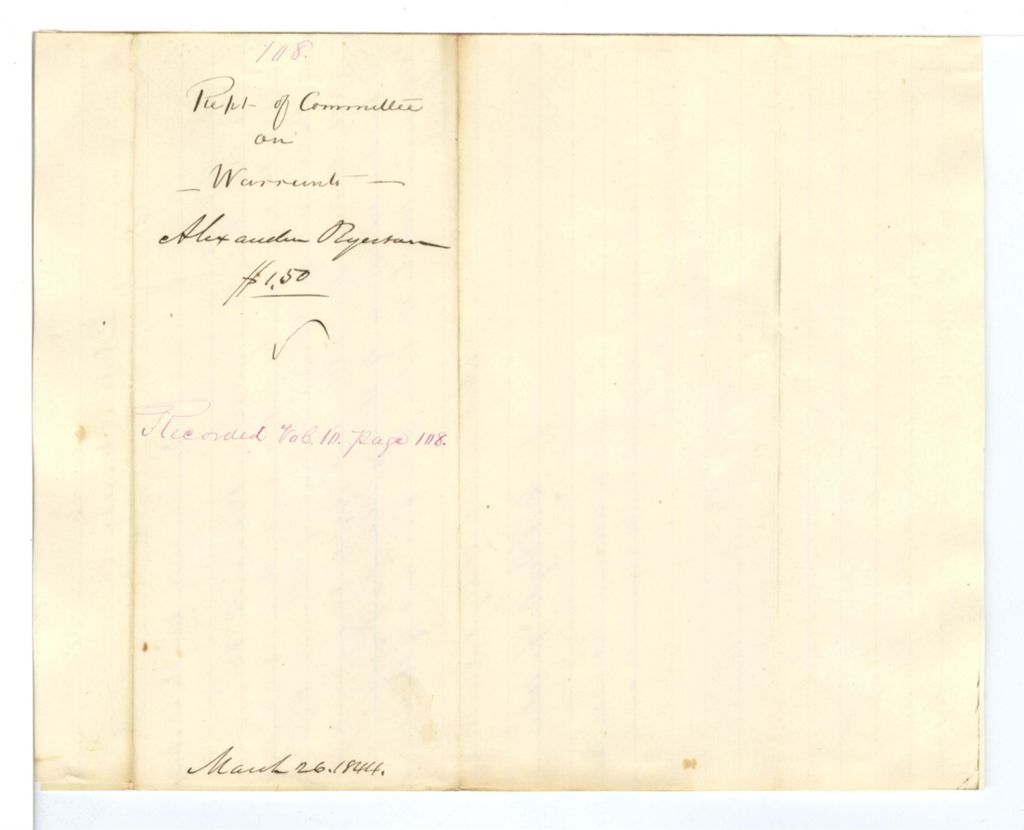 108.
Rept of Committee
on
— Warrants —
Alexander Ryerson
$1.50
Recorded Vol. 10. page 108.
March 26. 1844.